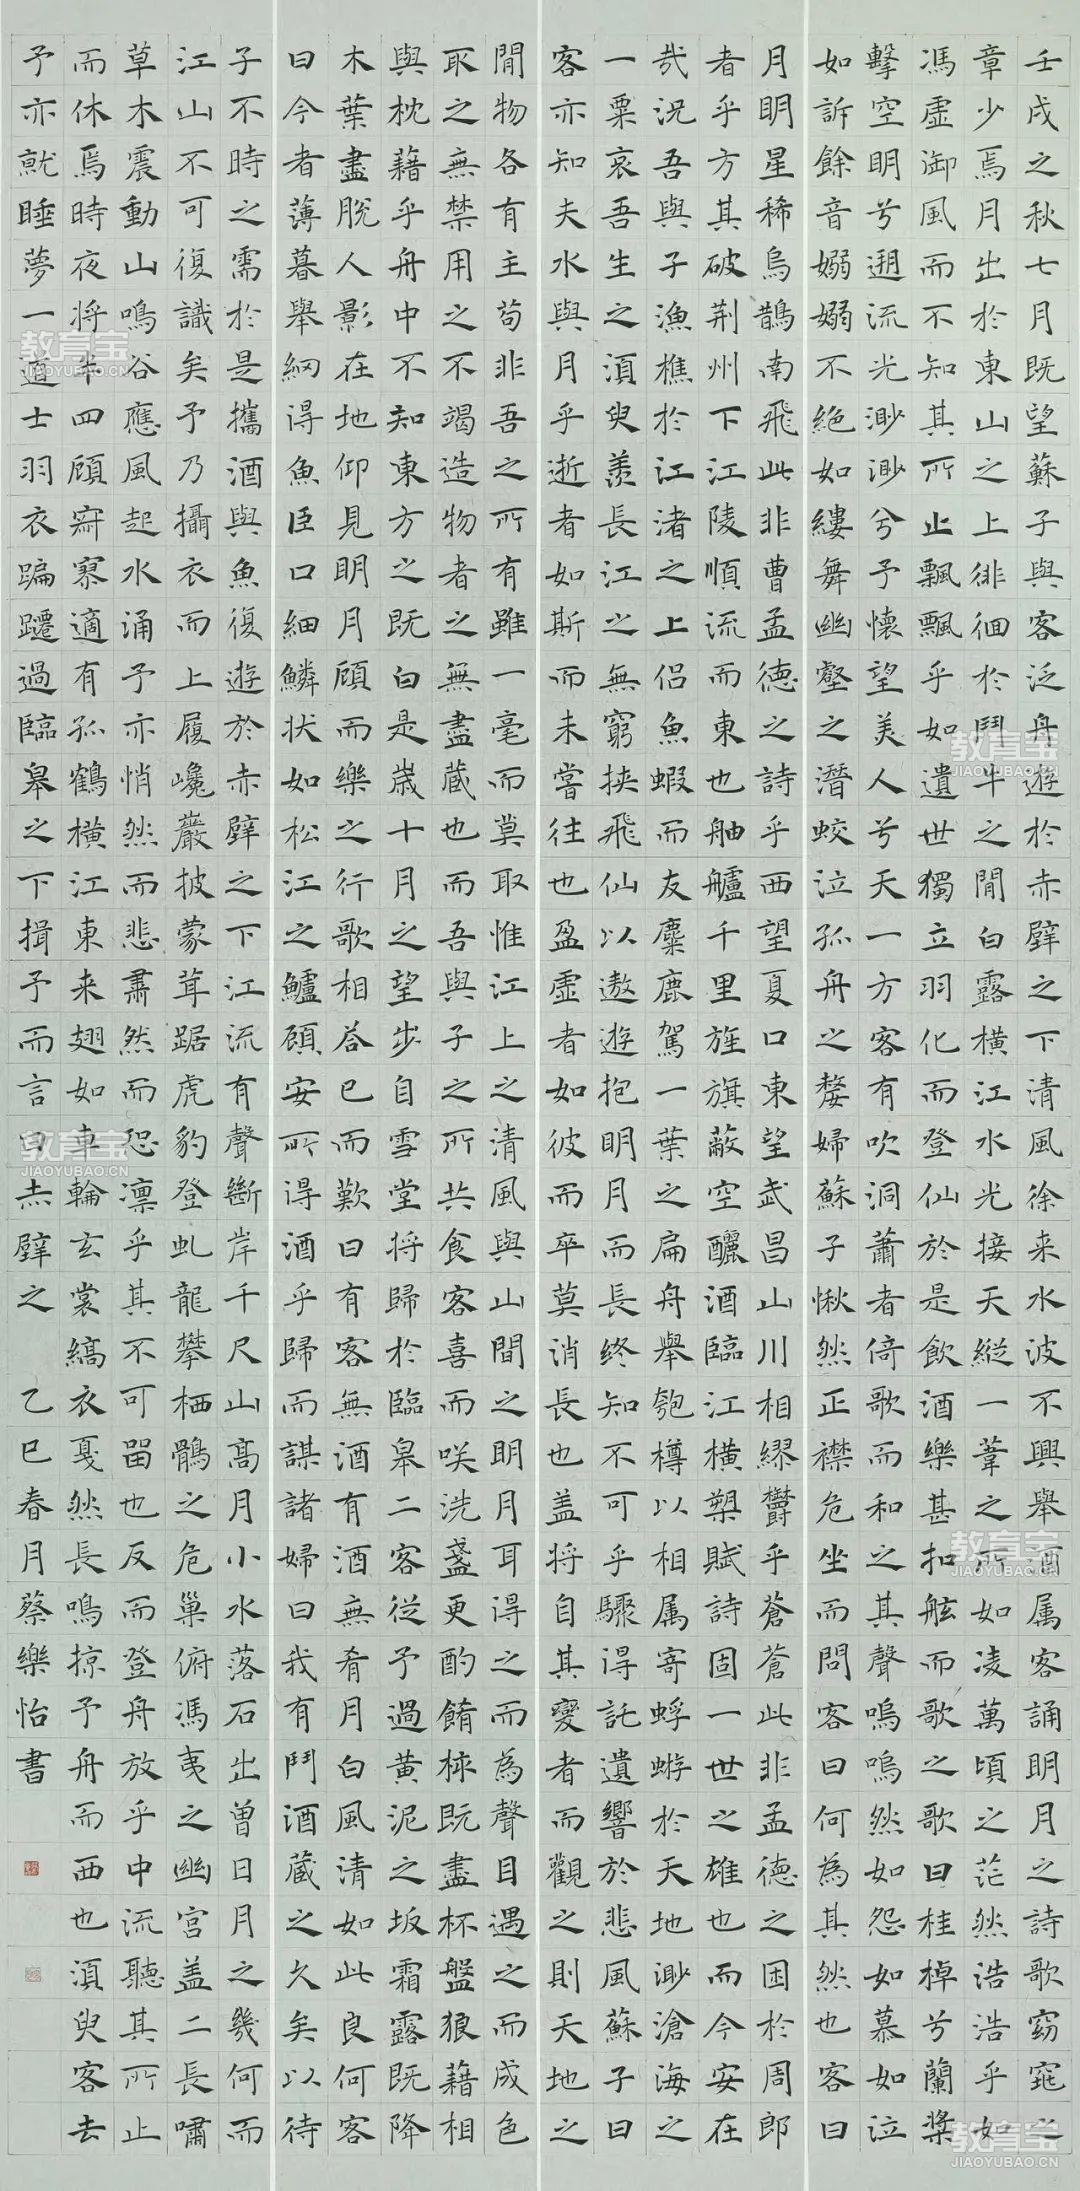 壬戌之秋七月既望蘇子與客泛舟遊於赤壁之下清風徐来水波不興舉酒属客誦明月之詩歌窈窕之
章少焉月出於東山之上徘徊於鬥牛之閒白露橫江水光接天縱一葦之所如凌萬頃之茫然浩浩乎如
馮虛御風而不知其所止飄飄乎如遺世獨立羽化而登仙於是飲酒樂甚扣舷而歌之歌曰桂棹兮蘭槳
擊空明兮遡流光渺渺兮予懷望美人兮天一方客有吹洞蕭者倚歌而和之其聲嗚嗚然如怨如慕如泣
如訴餘音嫋嫋不絕如縷舞幽壑之潛蛟泣孤舟之嫠婦蘇子愀然正襟危坐而問客曰何為其然也客曰
月明星稀烏鵲南飛此非曹孟德之詩乎西望夏口東望武昌山川相繆鬱乎蒼蒼此非孟德之困於周郎
者乎方其破荆州下江陵順流而東也舳艫千里旌旗蔽空釃酒臨江橫槊賦詩固一世之雄也而今安在
哉況吾與子漁樵於江渚之上侶魚蝦而友麋鹿駕一葉之扁舟舉匏樽以相属寄蜉蝣於天地渺滄海之
一粟哀吾生之湏臾羨長江之無窮挾飛仙以遨遊抱明月而長終知不可乎驟得託遺響於悲風蘇子曰
客亦知夫水與月乎逝者如斯而未嘗往也盈虛者如彼而卒莫消長也盖將自其變者而觀之則天地之
閒物各有主苟非吾之所有雖一毫而莫取惟江上之清風與山間之明月耳得之而為聲目遇之而成色
取之無禁用之不竭造物者之無盡蔵也而吾與子之所共食客喜而咲洗盞更酌餚棶既盡杯盤狼藉相
與枕藉乎舟中不知東方之既白是歲十月之望步自雪堂將歸於臨皋二客從予過黃泥之坂霜露既降
木葉盡脫人影在地仰見明月顧而樂之行歌相答已而歎曰有客無酒有酒無肴月白風清如此良何客
曰今者薄暮舉網得魚臣口細鱗狀如松江之鱸顧安所得酒乎歸而謀諸婦曰我有鬥酒蔵之久矣以待
子不時之需於是攜酒與魚復遊於赤壁之下江流有聲斷岸千尺山高月小水落石出曾日月之幾何而
江山不可復識矣予乃攝衣而上履巉巖披蒙茸踞虎豹登虬龍攀栖鶻之危巢俯馮夷之幽宮盖二長嘯
草木震動山鳴谷應風起水涌予亦悄然而悲肅然而恐凜乎其不可留也反而登舟放乎中流聽其所止
而休焉時夜將半四顧寂寥適有孤鶴橫江東来翅如車輪玄裳縞衣戛然長鳴掠予舟而西也湏臾客去
予亦就睡夢一道士羽衣蹁躚過臨皋之下揖予而言曰赤壁之
乙巳春月蔡樂怡書
教育宝
JIAOYUBAO.CN
教育宝
JIAOYUBAO.CN
教育宝
JIAOYUBAO.CN
教育宝
JIAOYUBAO.CN
教育宝
JIAOYUBAO.CN